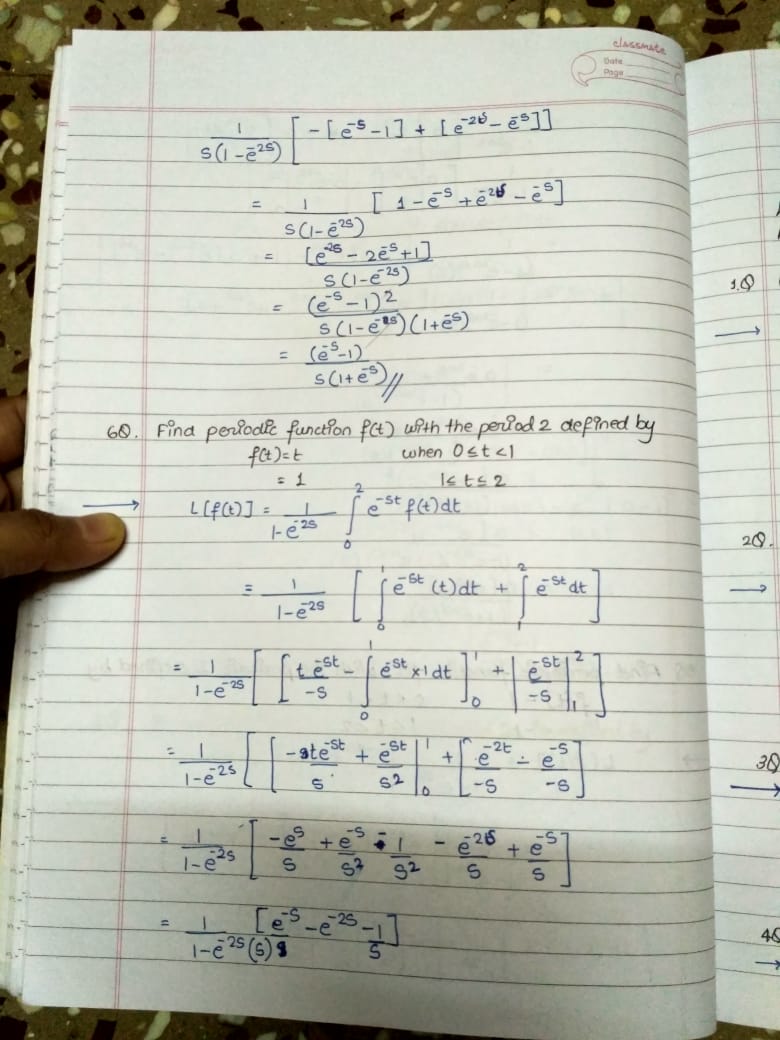 classmate
Date
Page
1/(s(1-e^-2s)) [-[e^-s -1] + [e^-2s - e^-s]]
= 1/(s(1-e^-2s)) [1 - e^-s + e^-2s - e^-s]
= [e^-2s - 2e^-s + 1]/(s(1-e^-2s))
= (e^-s - 1)^2/(s(1-e^-s)(1+e^-s))
= (e^-s - 1)/(s(1+e^-s)) //
6Q. Find periodic function f(t) with the period 2 defined by
f(t)=t when 0≤t<1
= 1 1≤ t ≤ 2
→ L[f(t)] = 1/(1-e^-2s) ∫_0^2 e^-st f(t)dt
= 1/(1-e^-2s) [∫_0^1 e^-st (t)dt + ∫_1^2 e^-st dt]
= 1/(1-e^-2s) [[t e^-st/-s - ∫_0^1 e^-st x1dt]_0^1 + |e^-st/-s|_1^2]
= 1/(1-e^-2s) [[-te^-st/s + e^-st/s^2|_0^1 + [e^-2t/-s - e^-s/-s]
= 1/(1-e^-2s) [-e^s/s + e^-s/s^2 - 1/s^2 - e^-2s/s + e^-s/s]
= 1/(1-e^-2s(s)) [e^-s - e^-2s - 1/s]
1.Q
→
2Q.
→
3Q
→
4Q
→